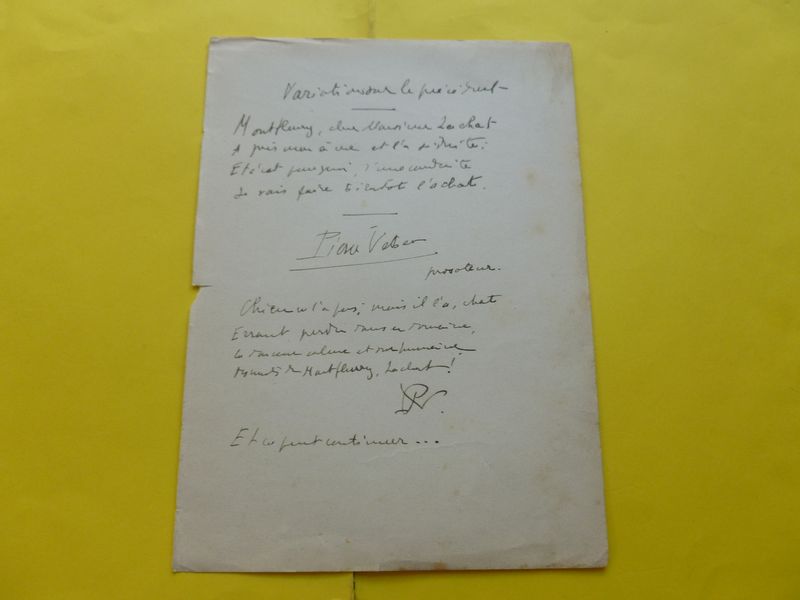 Variations sur le précédent
Montfleury, cher Monsieur Lachat
A pris mon âme et l'a séduite;
Et c'est pourquoi, d'une conduite
Je vais faire bientôt l'achat.
Pierre Veber
prosateur.
Chien ne l'a pas, mais il l'a, chat
Errant perdu dans ce domaine,
La douceur calme et
de Montfleury, Lachat!
PV.
Et ça peut continuer...